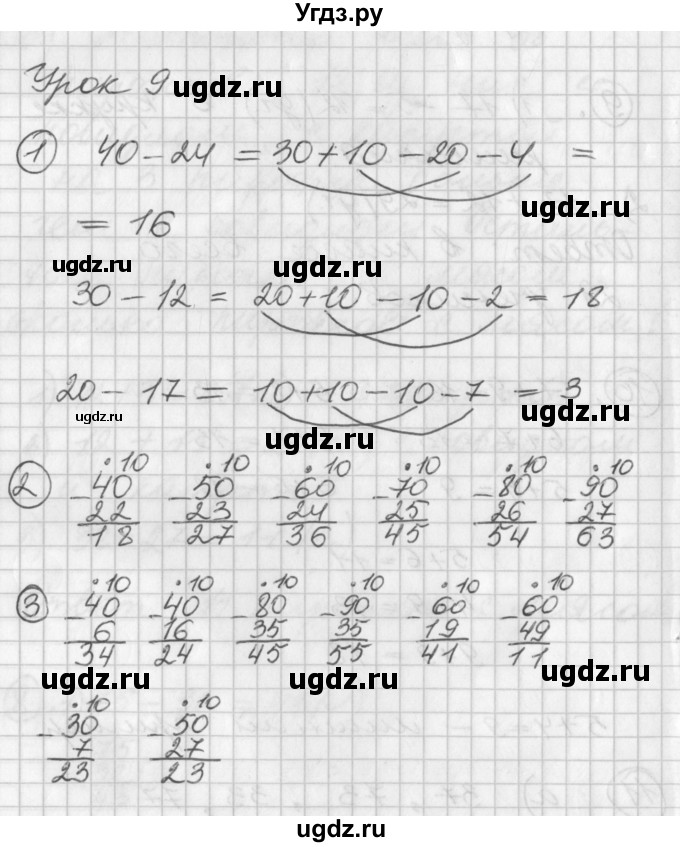 Угдз.ру
Урок 9
ugdz.ru
① 40 - 24 = 30 + 10 - 20 - 4 =
ugdz.ru
= 16
ugdz.ru ugdz.ru
30 - 12 = 20 + 10 - 10 - 2 = 18
20 - 17 = 10 + 10 - 10 - 7 = 3
ugdz.ru ugdz.ru ugdz.ru
② •10 •10 •10 •10 •10 •10
-40 -50 -60 -70 -80 -90
22 23 24 25 26 27
18 27 36 45 54 63
③ •10 •10 •10 •10 •10 •10
-40 -40 -80 -90 -60 -60
6 16 35 35 19 49
34 24 45 55 41 11
ugdz.ru ugdz.ru ugdz.ru
•10 •10
-30 -50
7 27
23 23
ugdz.ru